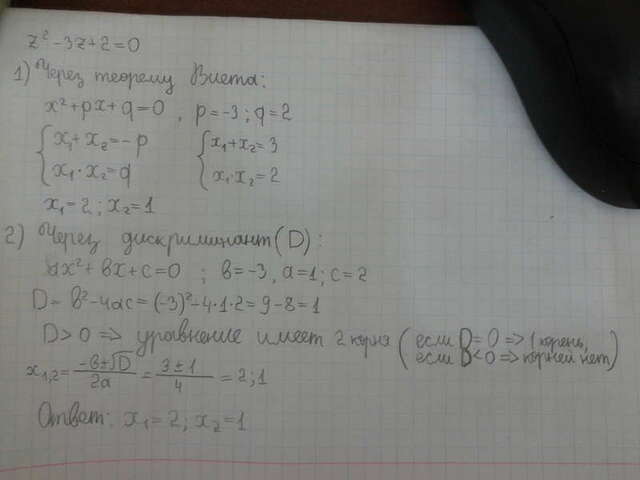 z² - 3z + 2 = 0
1) Через теорему Виета:
x² + px + q = 0 , p = -3 ; q = 2
{ x₁ + x₂ = -p { x₁ + x₂ = 3
{ x₁ · x₂ = q { x₁ · x₂ = 2
x₁ = 2 ; x₂ = 1
2) Через дискриминант (D) :
ax² + bx + c = 0 ; b = -3, a = 1 ; c = 2
D = b² - 4ac = (-3)² - 4·1·2 = 9 - 8 = 1
D > 0 => уравнение имеет 2 корня ( если D = 0 => 1 корень,
если D < 0 => корней нет )
x₁,₂ = (-b ± √D) / 2a = (3 ± 1) / 4 = 2 ; 1
Ответ: x₁ = 2 ; x₂ = 1